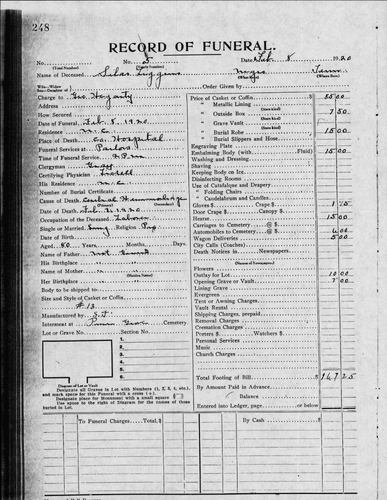 248
RECORD OF FUNERAL.
No. No. 3 Date Feb. 8 1920
(Total Number) (Yearly Number)
Name of Deceased, Silas Negro Tenn
(Where Born)
Order Given by
Charge to Geo. Hegarty
Address
How Secured
Date of Funeral Feb. 8, 1920.
Residence M.C.
Place of Death, Co. Hospital
Funeral Services at Parlors
Time of Funeral Service 2 P.M.
Clergyman
Certifying Physician
His Residence M.C.
Number of Burial Certificate
Cause of Death Cerebral Hemmorhage
(Primary) (Secondary)
Date of Death, Feb. 1920
Occupation of the Deceased, Laborer
Single or Married, Sing Religion
Aged 80 Years Months, Days
Name of Father Not
His Birthplace "
Name of Mother " "
(Maiden Name)
Her Birthplace "
Body to be shipped to
Size and Style of Casket or Coffin
#13
Manufactured by
Interment at Cemetery
Lot or Grave No. Section No.
1.
2.
3.
4.
5.
6.
Diagram of Lot or Vault
Designate all Graves in Lot with Numbers (1, 2, 3, etc.), and mark space for this Funeral with a cross (+)
Designate place for Monument with a small square
Use space to the right of Diagram for the names of those buried in Lot.
Price of Casket or Coffin $ 85 00
" Metallic Lining
" Outside Box 7 50
(State kind)
" Grave Vault
(State kind)
" Burial Robe 15 00
(State kind)
" Burial Slippers and Hose
Engraving Plate
Embalming Body (with Fluid) 15 00
Washing and Dressing
Shaving
Keeping Body on Ice
Disinfecting Rooms
Use of Catafalque and Drapery
" Folding Chairs
" Candelabrum and Candles
Gloves $ Crape $ 1 75
Door Crape $ Canopy $
Hearse 15 00
Carriages to Cemetery @ $
Automobiles to Cemetery @ $ 6 00
Wagon Deliveries 5 00
City Calls (Coaches)
Death Notices in Newspapers
Flowers
Outlay for Lot 10 00
Opening Grave or Vault 7 00
Lining Grave
Evergreen
Tent or Awning Charges
Vault Rental
Shipping Charges, prepaid
Removal Charges
Cremation Charges
Porters $ Watchers $
Personal Services
Music
Church Charges
Total Footing of Bill $ 147 25
By Amount Paid in Advance
Balance
Entered into Ledger, page or below.
To Funeral Charges Total, $ By Cash $